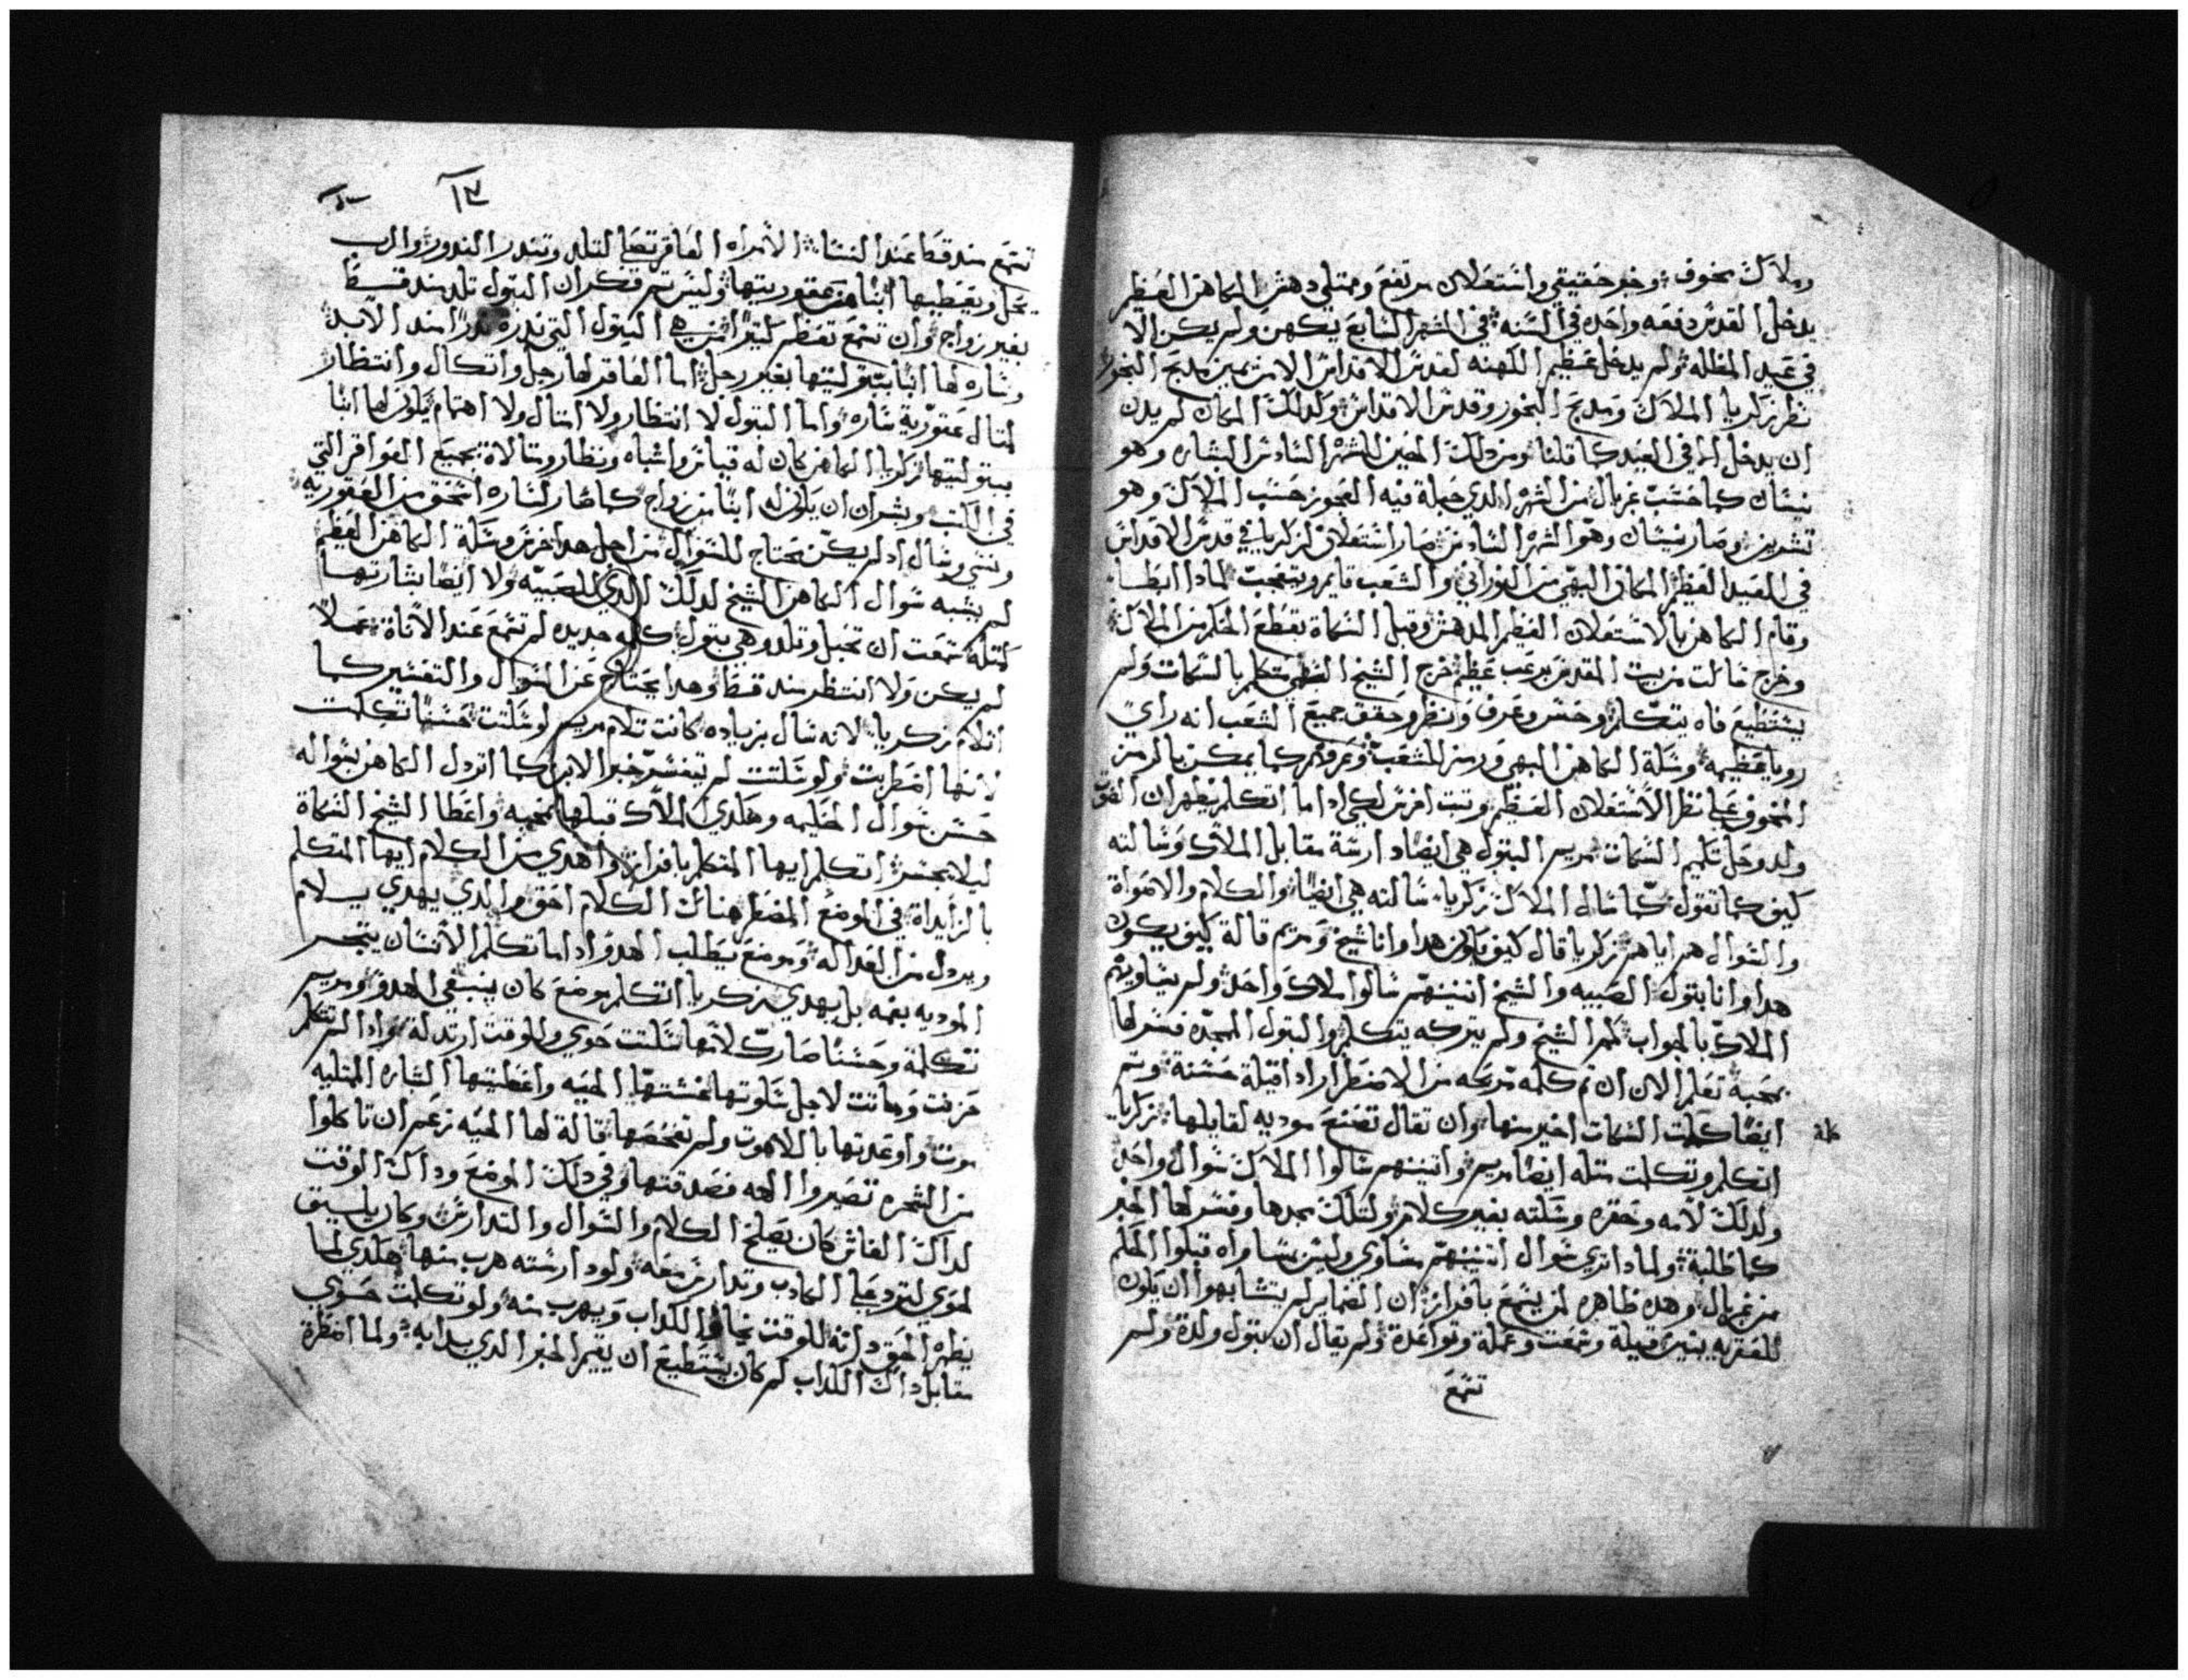 وملاك مخوف وخبر حقيقي واستعلان مرتفع وممتلي دهش الكاهن العظيم
يدخل القدس دفعه واحده في السنه في الشهر السابع يكهن ولم يكن الا
في عيد المظله ولم يدخل عظيم الكهنه لقدس الاقداس الا من يمين مدبح البخور
نظر زكريا الملاك ومدبح البخور وقدس الاقداس ولدلك المكان لم يدن
ان يدخل الا في العيد كما قلنا ومن دلك الحين للشهر السادس البشاره وهو
نيسان كما حسب غبريال من الشهر الدي حبلة فيه العجوز حسب الملاك وهو
تشرين وصار نيسان وهو الشهر السادس صار استعلان لزكريا في قدس الاقداس
في العيد العظيم المكان البهي من النوراني والشعب قايم ويتعجب لمادا ابطا
وقام الكاهن بالاستعلان العظيم المدهش وقبل السكاة بقطع الحكم من الملاك
وخرج ساكت من بيت المقدس برعب عظيم خرج الشيخ النظي متكلم بالسكات ولم
يستطيع فاه يتكلم وحس وعرف ونظر وحقق جميع الشعب انه راي
رويا عظيمه وشلة الكاهن البهي ورمز للشعب وعرفهم كما يمكن بالرمز
المخوف علي نظر الاستعلان العظيم وتبت اخرس لكي ادا ما اتكلم يظهر ان الحق
ولد وحل تلجيم السكات مريم البتول هي ايضا دارسة مقابل الملاك وسالته
كيف كما تقول كما سال الملاك زكريا سالته هي ايضا والكلام والاصواة
والسوال هم اياهم زكريا قال كيف يكون هدا وانا شيخ ومريم قالة كيف يكون
هدا وانا بتول الصبيه والشيخ اتنينهم سالوا ملاك واحد ولم يساويهم
الملاك بالجواب لجم الشيخ ولم يتركه يتكلم والبتول الممجده فسر لها
بمحبة تعلم الان ان تم كلمه مربحه من الاضطرار ادا قيلة حسنة وتم
ايضا كلمة السكات اخير منها وان تقال تصنع موديه لقايلها زكريا
كلمة
اتكلم وتكلمت متله ايضا مريم واتنينهم سالوا الملاك سوال واحد
ولدلك لامه وحقره وشلته بغير كلام ولتلك مجدها وفسر لها الخبر
كما طلبة ولمادا تري سوال اتنينهم مساوي وليس مساواه قبلوا الحكم
من غبريال وهده ظاهره لمن يسمع بافراز ان الضماير لم يتشابهوا ان يكون
للعقربه بنين قيلة وسمعت وعملة وتواعدة ولم يقال ان بتول ولدة ولم
تسمع
١٣
تسمع مند قط عند النسا الامراه العاقر تصلي لتلد وتندر الندور والرب
يحل ويعطيها ابنا من عقوريتها وليس تم فكر ان البتول تلد مند قط
بغير زواج وان تسمع تعظم كتيرا من هي البتول التي ندرة ندرا مند الابد
وساره لها ابنا بتوليتها بغير رجل اما العاقر لها رجل واتكال وانتظار
لمتال عقورية ساره واما البتول لا انتظار ولا امتال ولا اهتمام يكون لها ابنا
ببتوليتها زكريا الكاهن كان له قياس واشباه ونظار ومتالاة بجميع العواقر التي
في الكتب وبشر ان يكون له ابنا من زواج كما صار لساره استحق من العقوريه
ونسي وسال اد لم يكن محتاج للسوال من اجل هدا خرس وشلة الكاهن العظيم
لم يشبه سوال الكاهن الشيخ لدلك الدي للصبيه ولا ايضا بشارتها
كمتله سمعت ان تحبل وتلد وهي بتول كلمه جديده لم تسمع عند الاناة عملا
لم يكن ولا انتظر مند قط وهدا يحتاج عن السوال والتفسير كما
اتلام زكريا لانه سال بزياده كانت تلام مريم لو سكتت حسنا تكلمت
لانها اضطربت ولو سكتت لم تيفسر خبر الابن كما اتردل الكاهن بسواله
حسن سوال الحليمه وهكدي الملاك قبلها بمحبه واعطا الشيخ السكاة
ليلا يجسر اتكلم ايها المتكلم بافراز واهدي من الكلام ايها المتكلم
بالزايداة في الموضع المضطر هناك الكلام احق والدي يهدي يلام
ويردل من العداله وموضع يطلب الهدو ادا ما تكلم الانسان يتجسر
الموديه بفمه بل يهدي زكريا اتكلم بموضع كان ينبغي الهدو ومريم
تكلمة وحسنا صارة لانها سكتت حوي وللوقت ارتدلة وادا لم تتكلم
حزنت وماتت لاجل سكوتها غشتها الحيه واعطيتها البشاره الممتليه
موت واوعدتها بالاهوت ولم تفحصها قالة لها الحيه زعم ان تاكلوا
من الشجره تصيروا الهه فصدقتها وفي دلك الموضع وداك الوقت
لداك الغاش كان يصلح الكلام والسوال والتدارس وكان يليق
لحوي لترد علي الكادب وتدارس معه ولو دارسته هرب منها هكدي لما
يظهر الحق دلته للوقت يخاف الكداب ويهرب منه ولو تكلمت حوي
مقابل داك الكداب لم كان يستطيع ان يقيم الخبر الدي بدا به ولما اضطرة